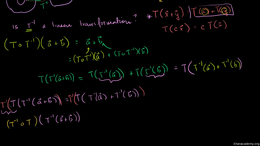 is T⁻¹ a linear transformation? • T(x⃗ + y⃗) = T(x⃗) + T(y⃗)
T(cx⃗) = cT(x⃗)
(T∘T⁻¹)(a⃗+b⃗) = a⃗ + b⃗
= (T∘T⁻¹)(a⃗) + (T∘T⁻¹)(b⃗)
T(T⁻¹(a⃗+b⃗)) = T(T⁻¹(a⃗)) + T(T⁻¹(b⃗)) = T(T⁻¹(a⃗) + T⁻¹(b⃗))
T⁻¹(T(T⁻¹(a⃗+b⃗))) = T⁻¹(T(T⁻¹(a⃗) + T⁻¹(b⃗)))
(T⁻¹∘T)(T⁻¹(a⃗+b⃗))
khanacademy.org